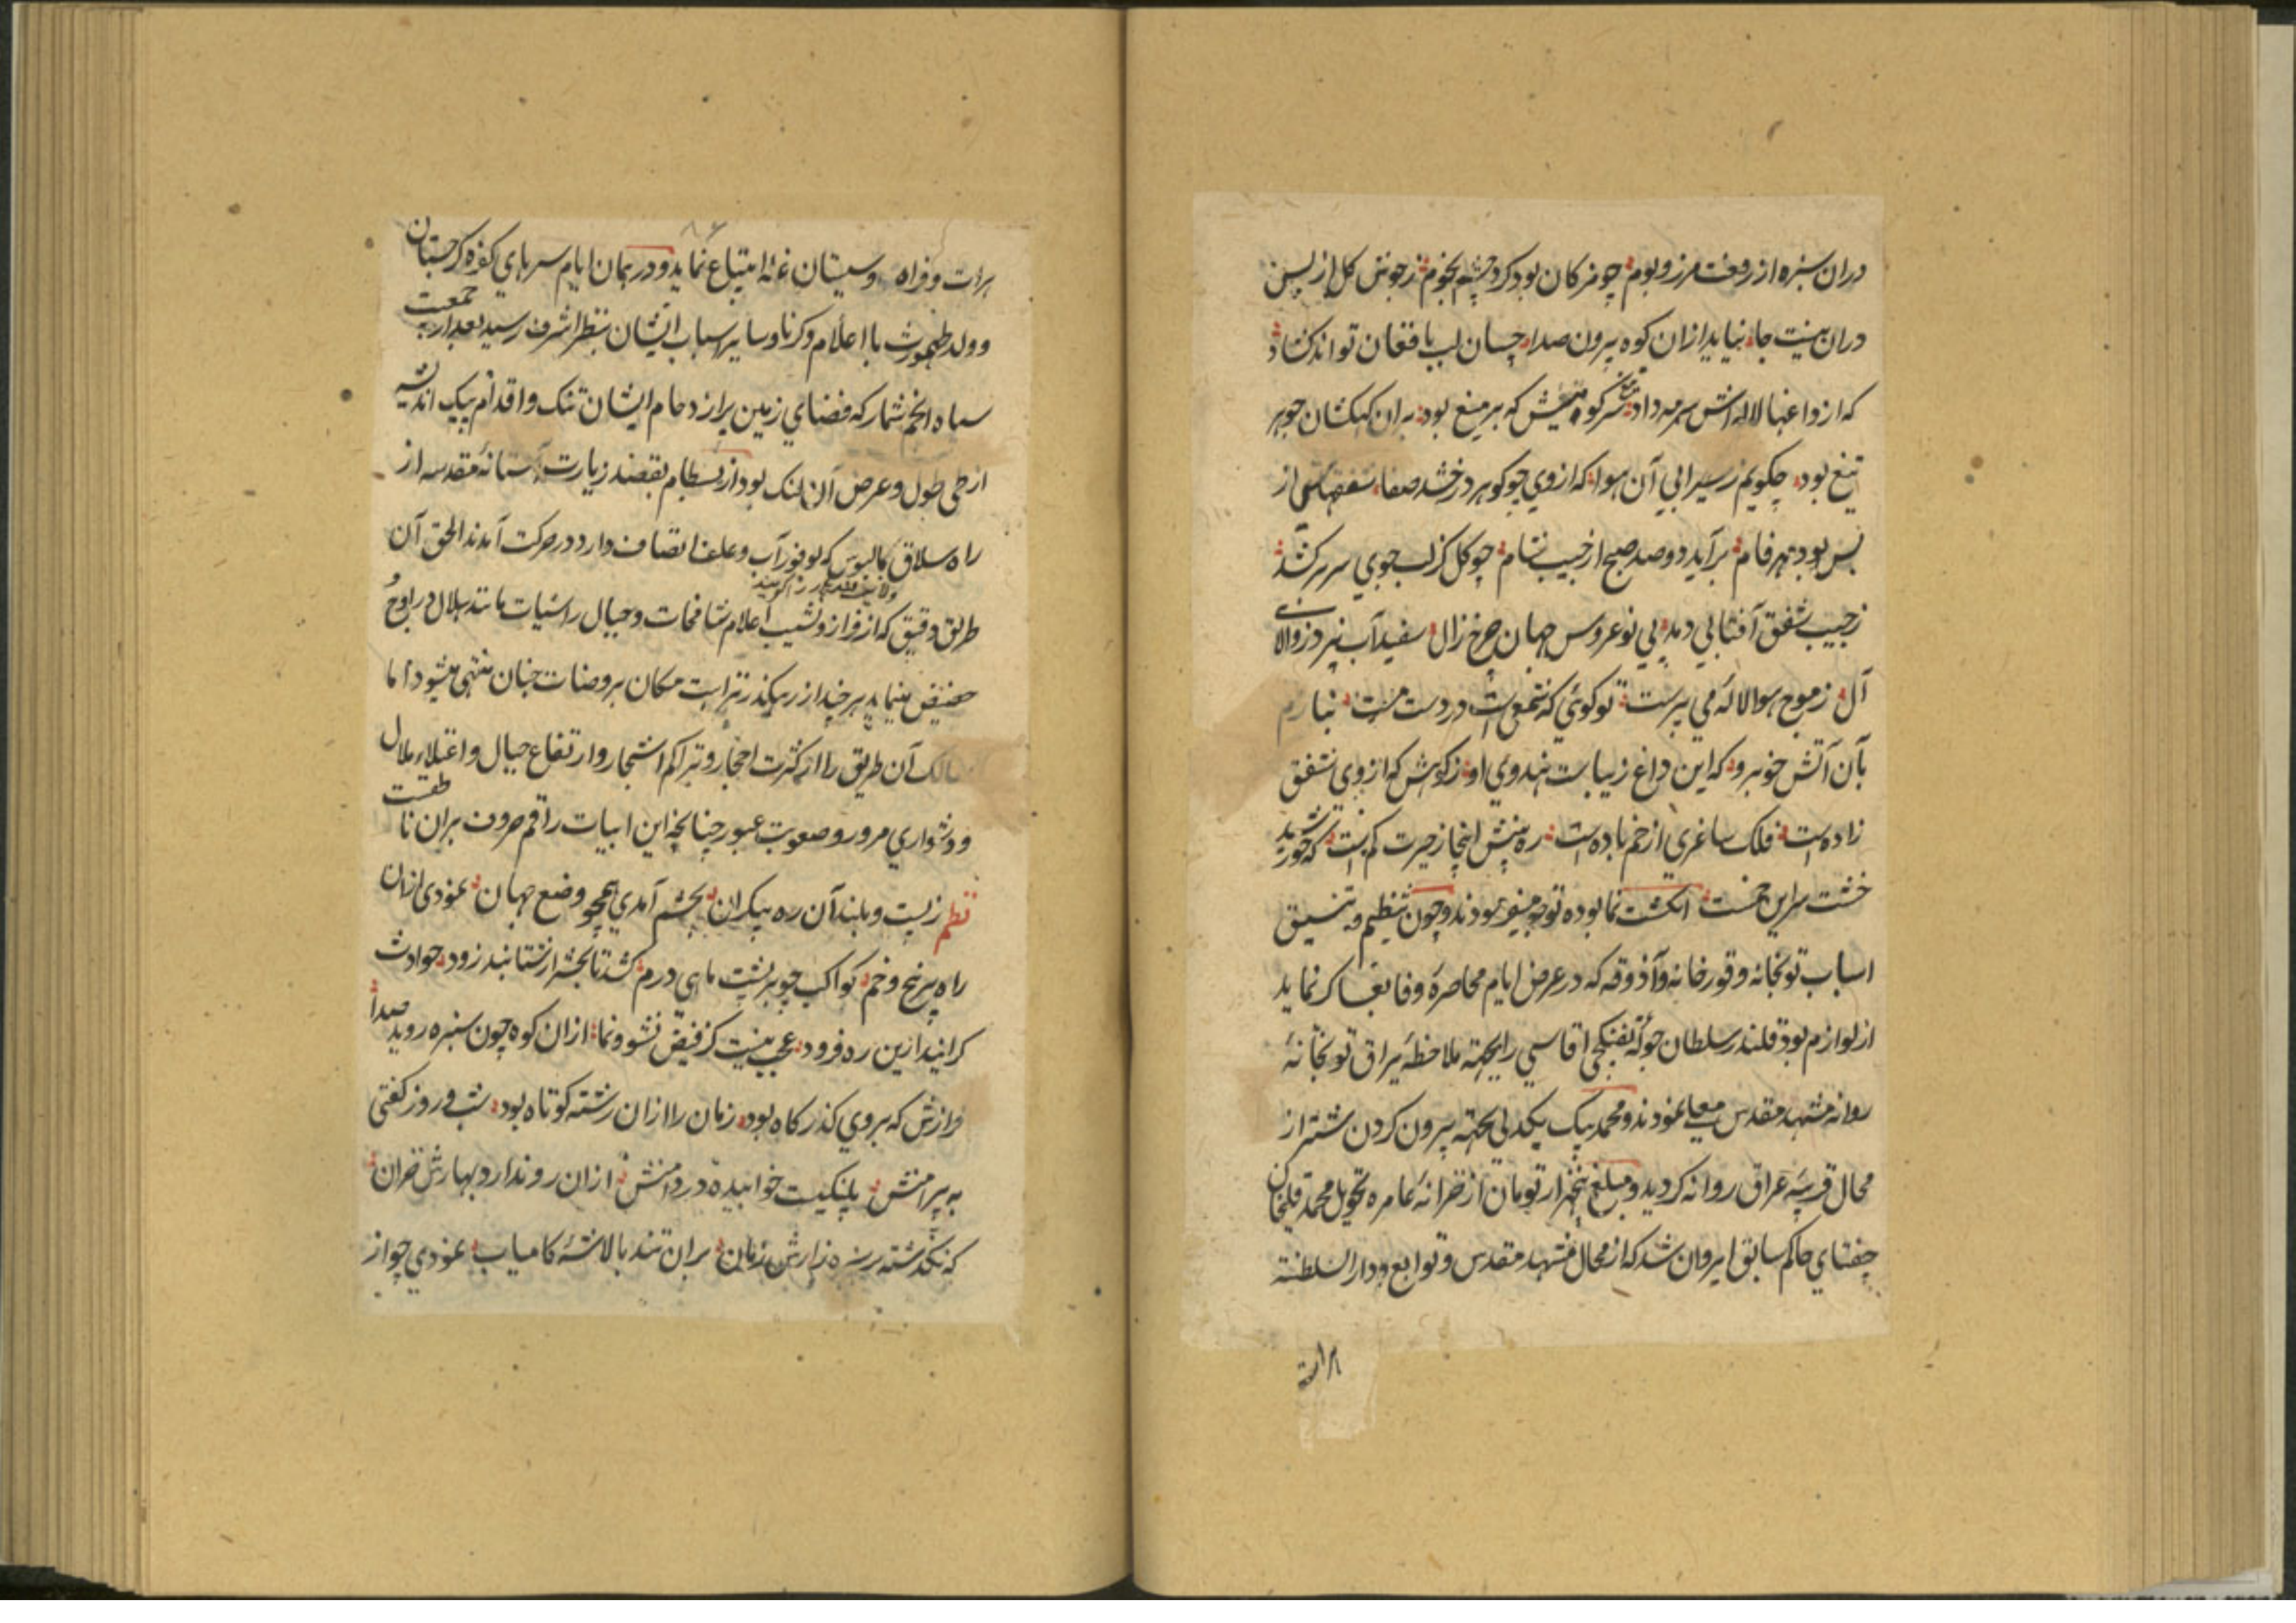 دران سبزه از رفعت مرز و بوم چو مژگان بود کرد چشم نجوم ز جوش کل از بس
دران نیست جا نیاید ازان کوه بیرون صدا چسان لب بافغان تواند کشاد
که از داغها لاله اش سرمه داد سر کوه که بر میغ بود بران کهکشان جوهر
تیغ بود چکویم ز سیرابی آن هوا که از وی چو کوهر درخشد صفا از
بس بود فام برآید دو صد صبح از جیب شام چو کل کز لب جوی سر برکشد
ز جیب شفق آفتابی دمد پی نوعروس جهان چرخ زال سفیدآب
آل ز موج هوا لاله می پرست تو کوئی که شمعی است در دست مست نیارم
بآن آتش خو برو که این داغ زیبا ست هندوی او که از وی شفق
زاده است فلک ساغری از خم باده است ره از حیرت کم است که خورشید
خشت سر این خمست انکشت نما بوده توجه میفرمودند و چون تنظیم و تنسیق
اسباب توپخانه و قورخانه و آذوقه که در عرض ایام محاصره وفا بعساکر نماید
از لوازم بود قلندر سلطان چوله تفنکچی اقاسی را بجهته ملاحظهٔ یراق توپخانهٔ
روانه مشهد مقدس معلی نمودند و محمد بیک بیکدلی بجهته بیرون کردن شتر از
محال عراق روانه کردید و مبلغ پنجهزار تومان از خزانه عامره تحویل محمد قلیخان
چغتای حاکم سابق ایروان شد که از محال مشهد مقدس و توابع و دار السلطنة
هرات
هرات و فراه و سیستان غله ابتیاع نماید و در همان ایام سرهای کفره کرجستان
و ولد طهمورث با اعلام و کرنا و سایر اسباب ایشان بنظر اشرف رسید بعد از جمعیت
سپاه انجم شمار که فضای زمین از ازدحام ایشان تنک و اقدام پیک اندیشه
از طی طول و عرض آن لنک بود از بسطام بقصد زیارت آستانه مقدسه از
راه سلاق کالپوس که بوفور آب و علف اتصاف دارد در حرکت آمدند الحق آن
طریق دقیق که از فراز و نشیب اعلام شامخات و جبال راسیات مانند هلال در اوج و
حضیض مینماید هر چند از رهکذر نزاهت مکان بروضات جنان منتهی میشود اما
سالک آن طریق را از کثرت احجار و تراکم اشجار و ارتفاع جبال و اعتلاء تلال
و دشواری مرور و صعوبت عبور چنانچه این ابیات راقم حروف بران ناطقست
نظم ز پست و بلند آن ره بیکران بچشم آمدی همچو وضع جهان نمودی ازان
راه پر پیچ و خم کواکب چو بر پشت ماهی درم کشد تا بحشر ار شتابند زود حوادث
کر آیند ازین ره فرود عجب نیست کز فیض نشو و نما ازان کوه چون سبزه روید صدا
درازش که بروی کذر کاه بود زمان را ازان رشته کوتاه بود شب و روز کفتی
به پیرامنش پلنکیست خوابیده در دامنش ازان رو ندارد بهارش خزان
که نکذشته بر سبزه زارش زمان بران تند بالا شه کامیاب نمودی چو از